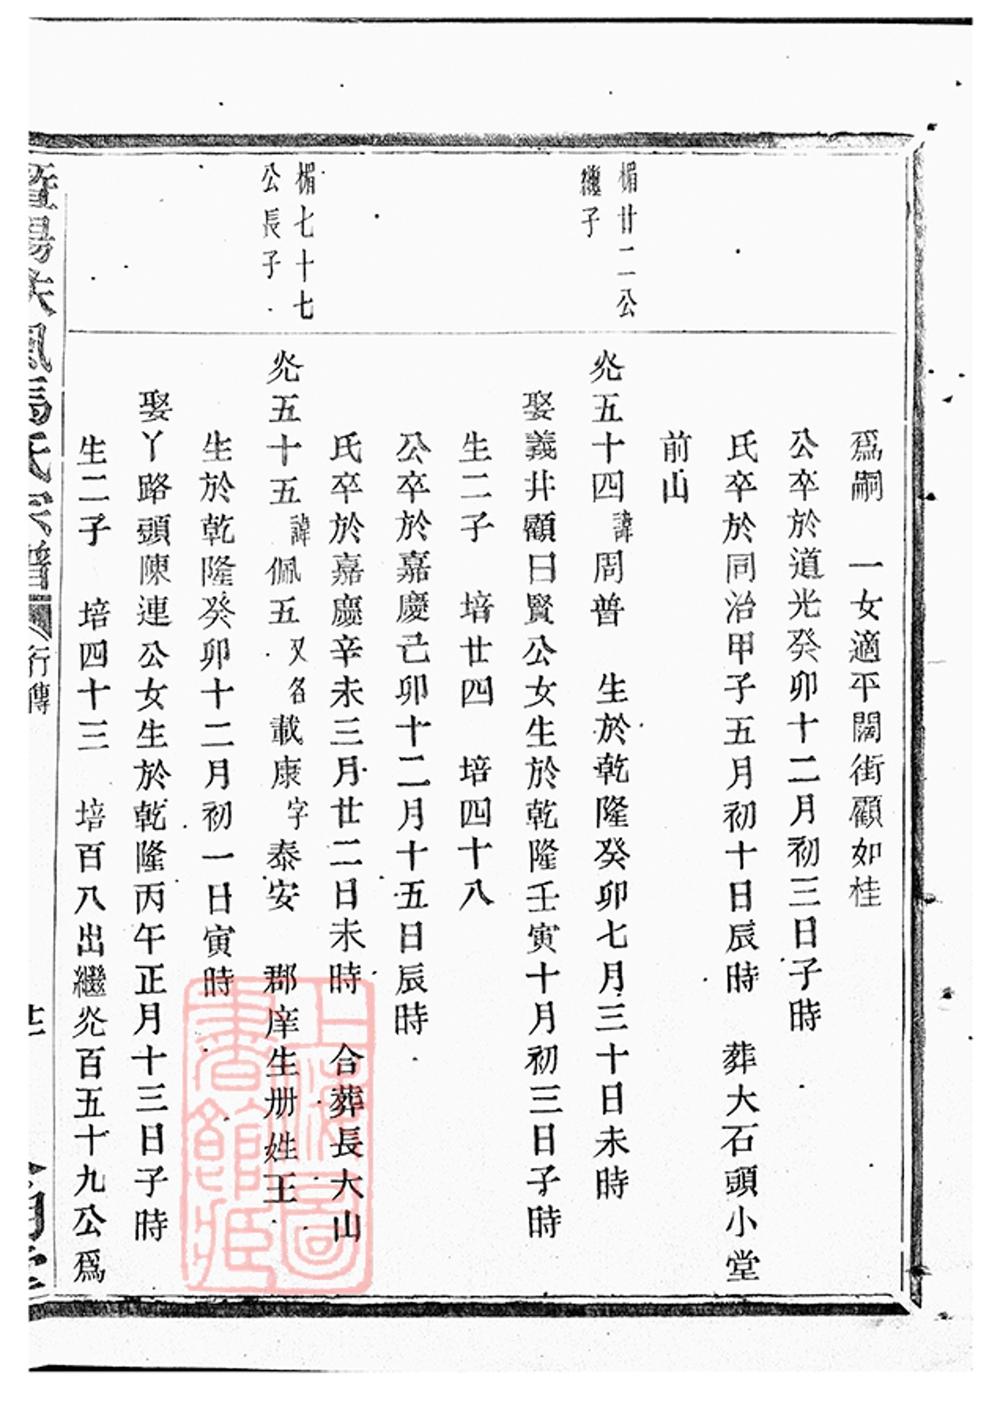 爲嗣　一女適平闊街顧如桂
公卒於道光癸卯十二月初三日子時
氏卒於同治甲子五月初十日辰時　葬大石頭小堂
前山
楣廿二公
繼子
烾五十四諱周普　生於乾隆癸卯七月三十日未時
娶義井顧曰賢公女生於乾隆壬寅十月初三日子時
生二子　培廿四　培四十八
公卒於嘉慶己卯十二月十五日辰時
氏卒於嘉慶辛未三月廿二日未時　合葬長大山
楣七十七
公長子
烾五十五諱佩五又名載康字泰安　郡庠生册姓王
生於乾隆癸卯十二月初一日寅時
娶丫路頭陳連公女生於乾隆丙午正月十三日子時
生二子　培四十三　培百八出繼烾百五十九公爲
暨陽扶風馬氏宗譜
行傳
上海圖
書館藏